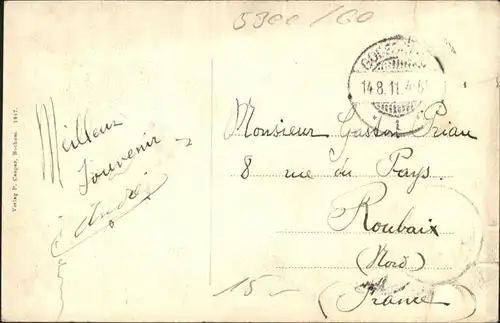 5300/60
14.8.11.
Meilleur
souvenir
André
Verlag P. Caspar, Bochum. 1907.
Monsieur Gaston Priau
8 rue du Pays.
Roubaix
(Nord)
(France)
15-